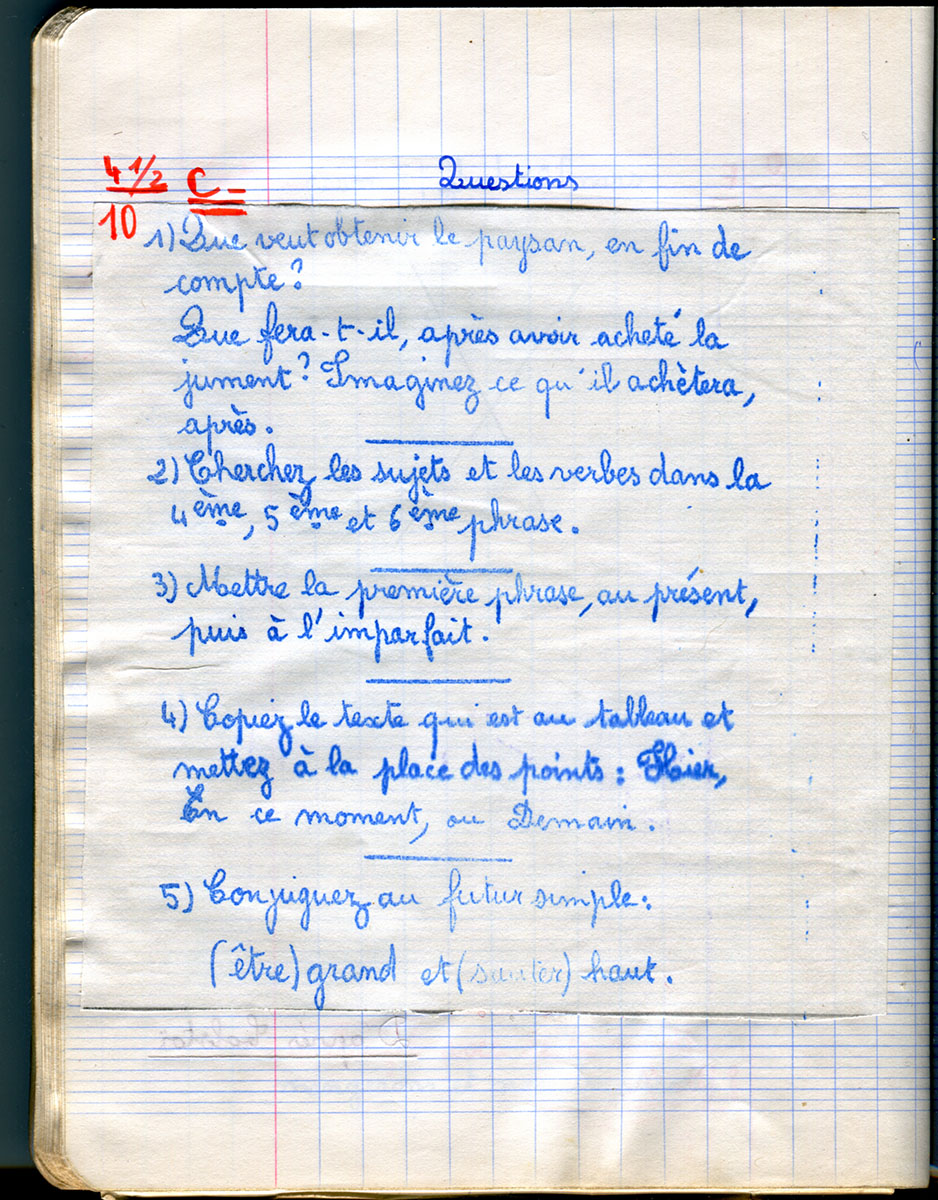 4 1/2 C-
10
Questions
1) Que veut obtenir le paysan, en fin de
compte?
Que fera-t-il, après avoir acheté la
jument? Imaginez ce qu'il achètera,
après.
2) Cherchez les sujets et les verbes dans la
4ème, 5ème et 6ème phrase.
3) Mettre la première phrase, au présent,
puis à l'imparfait.
4) Copiez le texte qui est au tableau et
mettez à la place des points : Hier,
En ce moment, ou Demain.
5) Conjuguez au futur simple:
(être) grand et (sauter) haut.